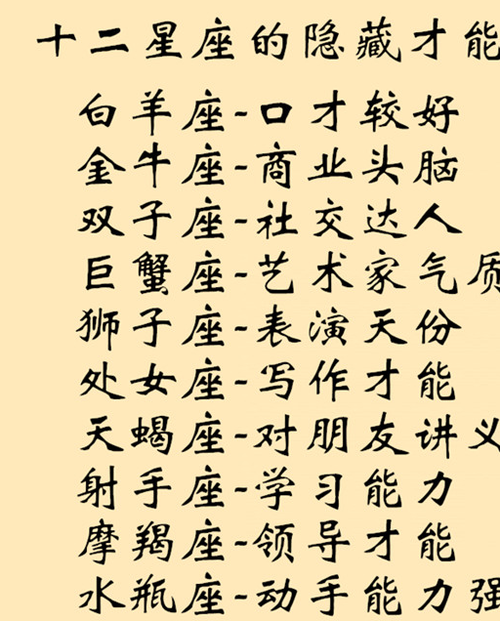 十二星座的隐藏才能
白羊座-口才较好
金牛座-商业头脑
双子座-社交达人
巨蟹座-艺术家气质
狮子座-表演天份
处女座-写作才能
天蝎座-对朋友讲义
射手座-学习能力
摩羯座-领导才能
水瓶座-动手能力强